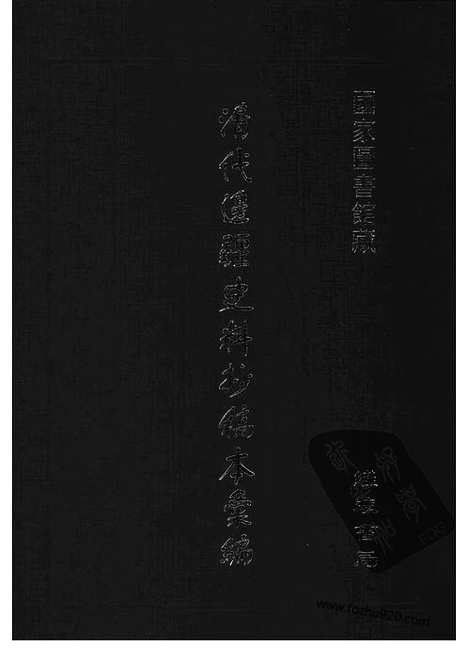 國家圖書館藏
清代邊疆史料抄稿本彙編
綫裝書局
www.fozhu920.com